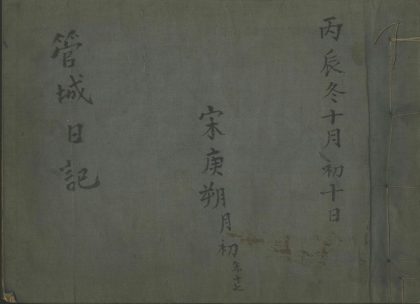 丙辰冬十月初十日
宋庚朔月初
管城日記